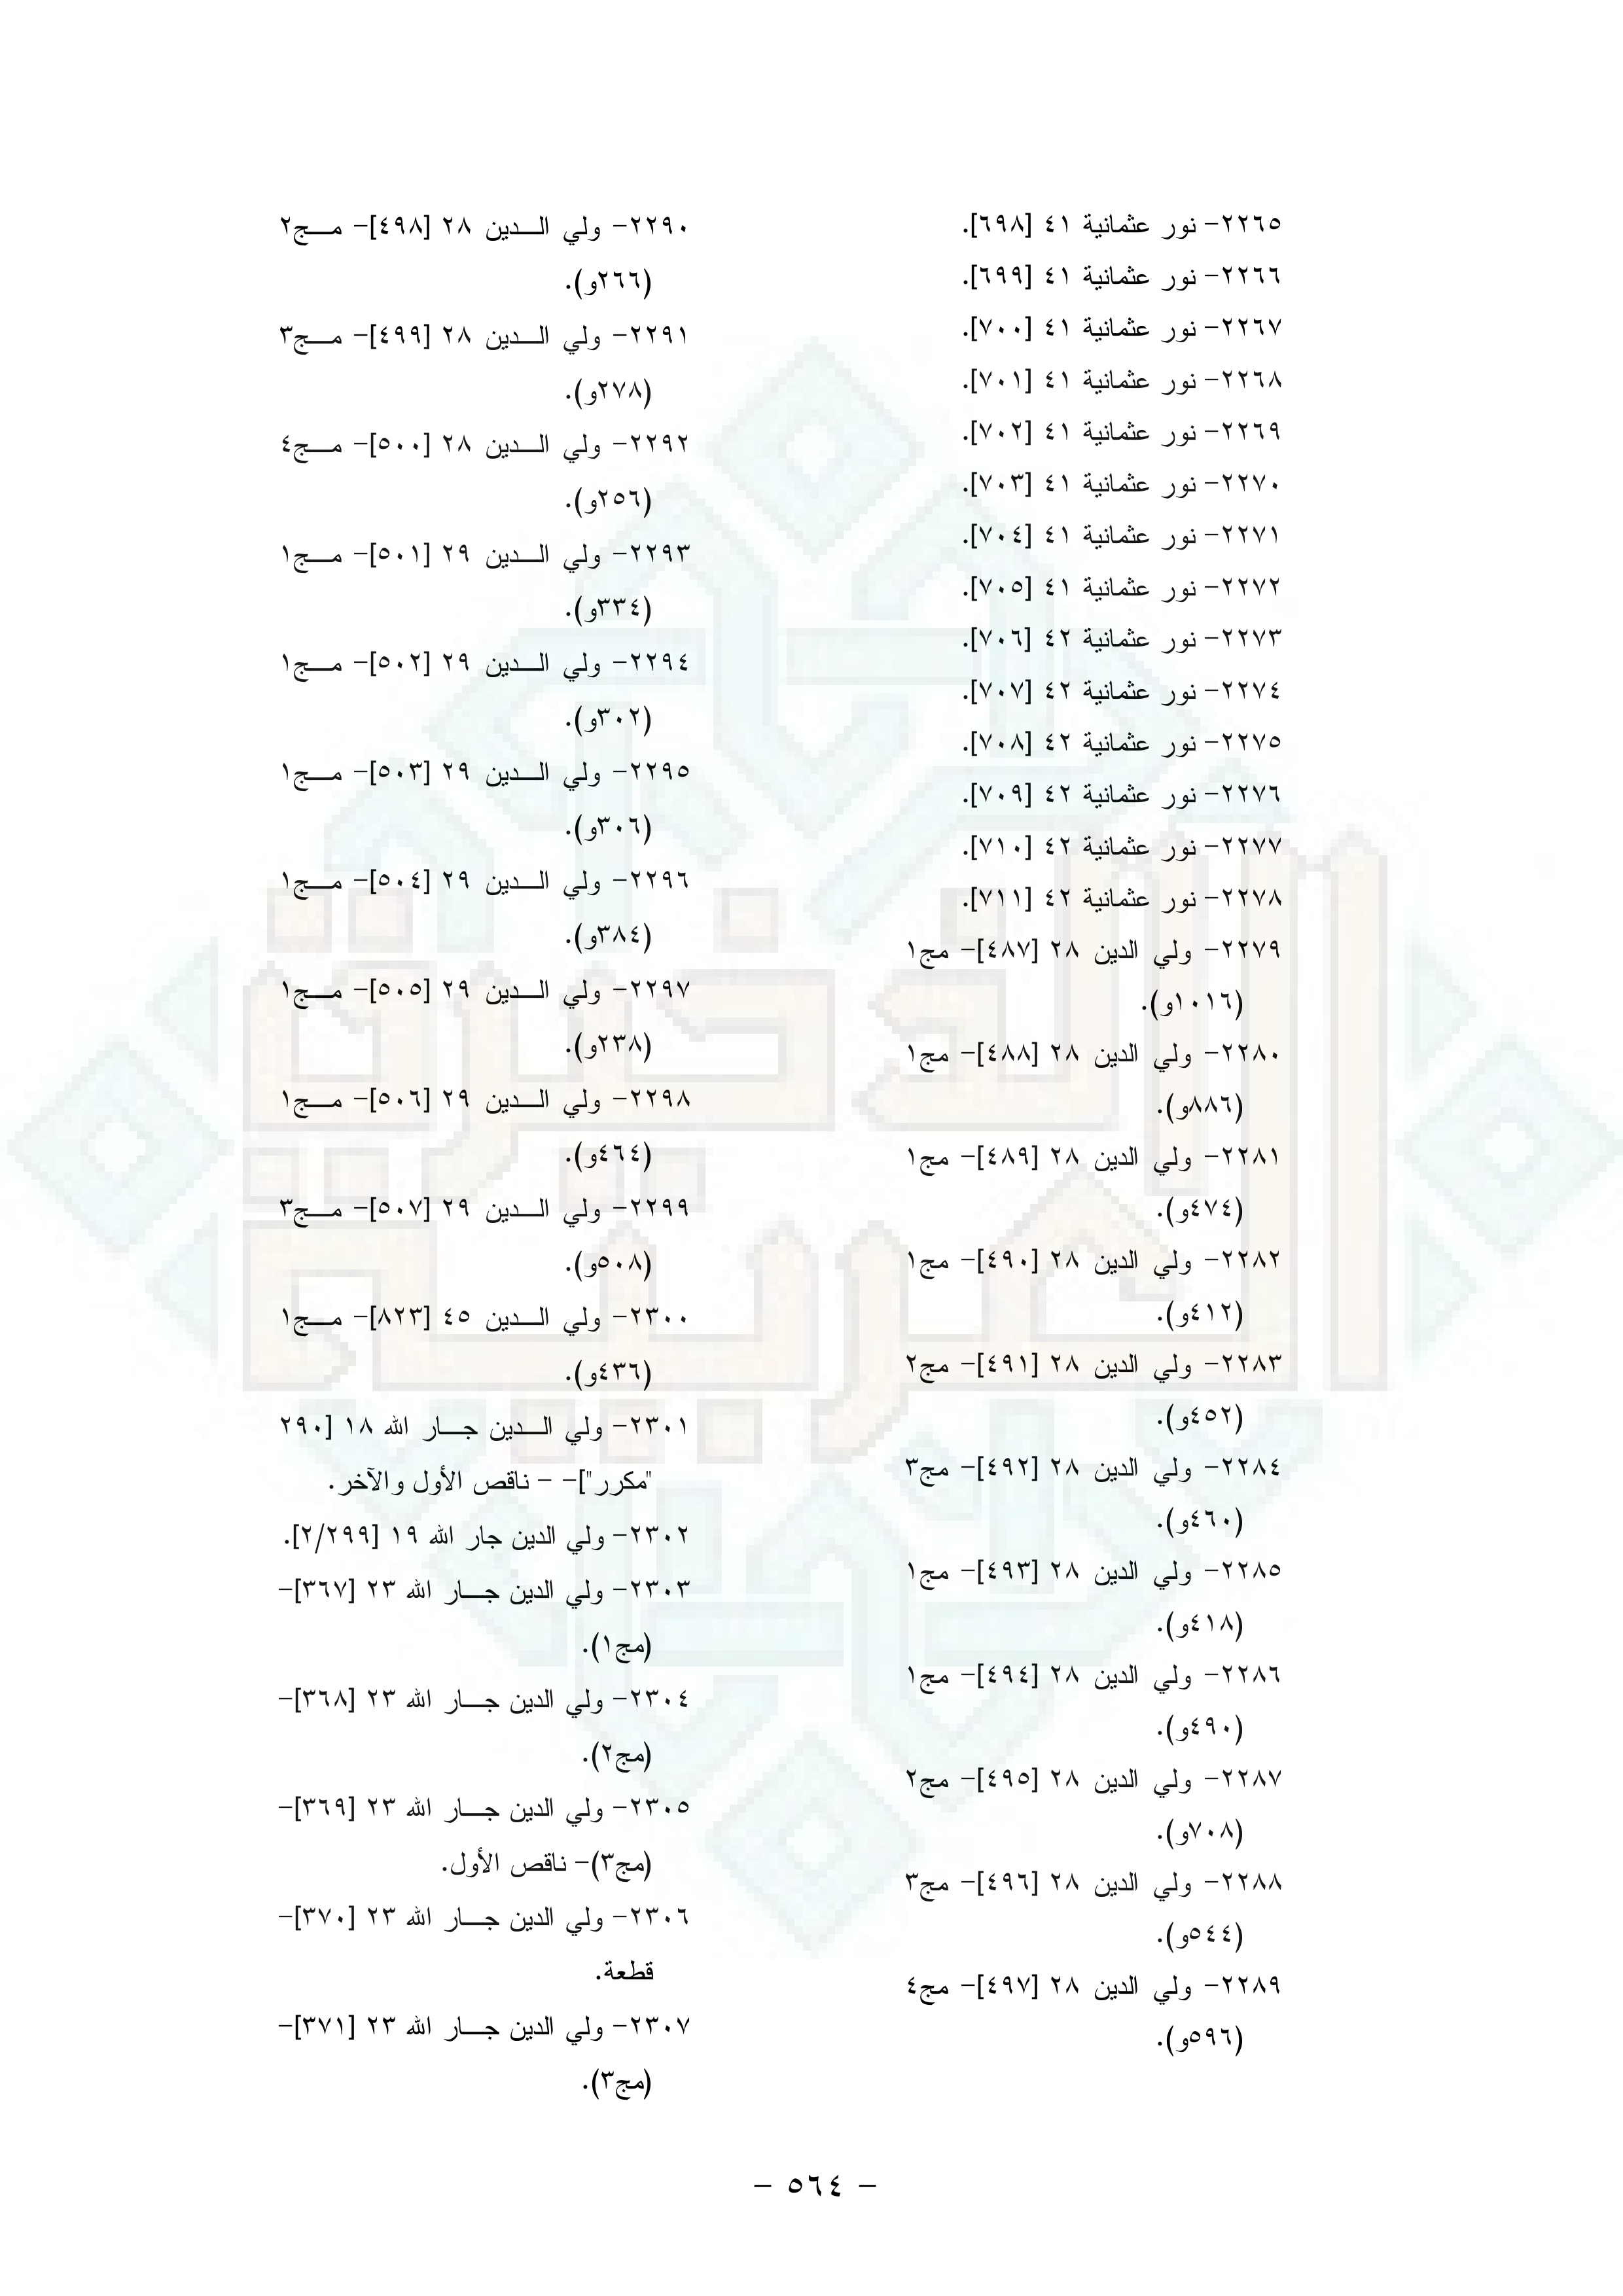 ٢٢٦٥- نور عثمانية ٤١ [٦٩٨].
٢٢٦٦- نور عثمانية ٤١ [٦٩٩].
٢٢٦٧- نور عثمانية ٤١ [٧٠٠].
٢٢٦٨- نور عثمانية ٤١ [٧٠١].
٢٢٦٩- نور عثمانية ٤١ [٧٠٢].
٢٢٧٠- نور عثمانية ٤١ [٧٠٣].
٢٢٧١- نور عثمانية ٤١ [٧٠٤].
٢٢٧٢- نور عثمانية ٤١ [٧٠٥].
٢٢٧٣- نور عثمانية ٤٢ [٧٠٦].
٢٢٧٤- نور عثمانية ٤٢ [٧٠٧].
٢٢٧٥- نور عثمانية ٤٢ [٧٠٨].
٢٢٧٦- نور عثمانية ٤٢ [٧٠٩].
٢٢٧٧- نور عثمانية ٤٢ [٧١٠].
٢٢٧٨- نور عثمانية ٤٢ [٧١١].
٢٢٧٩- ولي الدين ٢٨ [٤٨٧]- مج١
(١٠١٦و).
٢٢٨٠- ولي الدين ٢٨ [٤٨٨]- مج١
(٨٨٦و).
٢٢٨١- ولي الدين ٢٨ [٤٨٩]- مج١
(٤٧٤و).
٢٢٨٢- ولي الدين ٢٨ [٤٩٠]- مج١
(٤١٢و).
٢٢٨٣- ولي الدين ٢٨ [٤٩١]- مج٢
(٤٥٢و).
٢٢٨٤- ولي الدين ٢٨ [٤٩٢]- مج٣
(٤٦٠و).
٢٢٨٥- ولي الدين ٢٨ [٤٩٣]- مج١
(٤١٨و).
٢٢٨٦- ولي الدين ٢٨ [٤٩٤]- مج١
(٤٩٠و).
٢٢٨٧- ولي الدين ٢٨ [٤٩٥]- مج٢
(٧٠٨و).
٢٢٨٨- ولي الدين ٢٨ [٤٩٦]- مج٣
(٥٤٤و).
٢٢٨٩- ولي الدين ٢٨ [٤٩٧]- مج٤
(٥٩٦و).
٢٢٩٠- ولي الـــدين ٢٨ [٤٩٨]- مـــج٢
(٢٦٦و).
٢٢٩١- ولي الـــدين ٢٨ [٤٩٩]- مـــج٣
(٢٧٨و).
٢٢٩٢- ولي الـــدين ٢٨ [٥٠٠]- مـــج٤
(٢٥٦و).
٢٢٩٣- ولي الـــدين ٢٩ [٥٠١]- مـــج١
(٣٣٤و).
٢٢٩٤- ولي الـــدين ٢٩ [٥٠٢]- مـــج١
(٣٠٢و).
٢٢٩٥- ولي الـــدين ٢٩ [٥٠٣]- مـــج١
(٣٠٦و).
٢٢٩٦- ولي الـــدين ٢٩ [٥٠٤]- مـــج١
(٣٨٤و).
٢٢٩٧- ولي الـــدين ٢٩ [٥٠٥]- مـــج١
(٢٣٨و).
٢٢٩٨- ولي الـــدين ٢٩ [٥٠٦]- مـــج١
(٤٦٤و).
٢٢٩٩- ولي الـــدين ٢٩ [٥٠٧]- مـــج٣
(٥٠٨و).
٢٣٠٠- ولي الـــدين ٤٥ [٨٢٣]- مـــج١
(٤٣٦و).
٢٣٠١- ولي الـــدين جـــار الله ١٨ [٢٩٠
"مكرر"]- - ناقص الأول والآخر.
٢٣٠٢- ولي الدين جار الله ١٩ [٢/٢٩٩].
٢٣٠٣- ولي الدين جـــار الله ٢٣ [٣٦٧]-
(مج١).
٢٣٠٤- ولي الدين جـــار الله ٢٣ [٣٦٨]-
(مج٢).
٢٣٠٥- ولي الدين جـــار الله ٢٣ [٣٦٩]-
(مج٣)- ناقص الأول.
٢٣٠٦- ولي الدين جـــار الله ٢٣ [٣٧٠]-
قطعة.
٢٣٠٧- ولي الدين جـــار الله ٢٣ [٣٧١]-
(مج٣).
- ٥٦٤ -